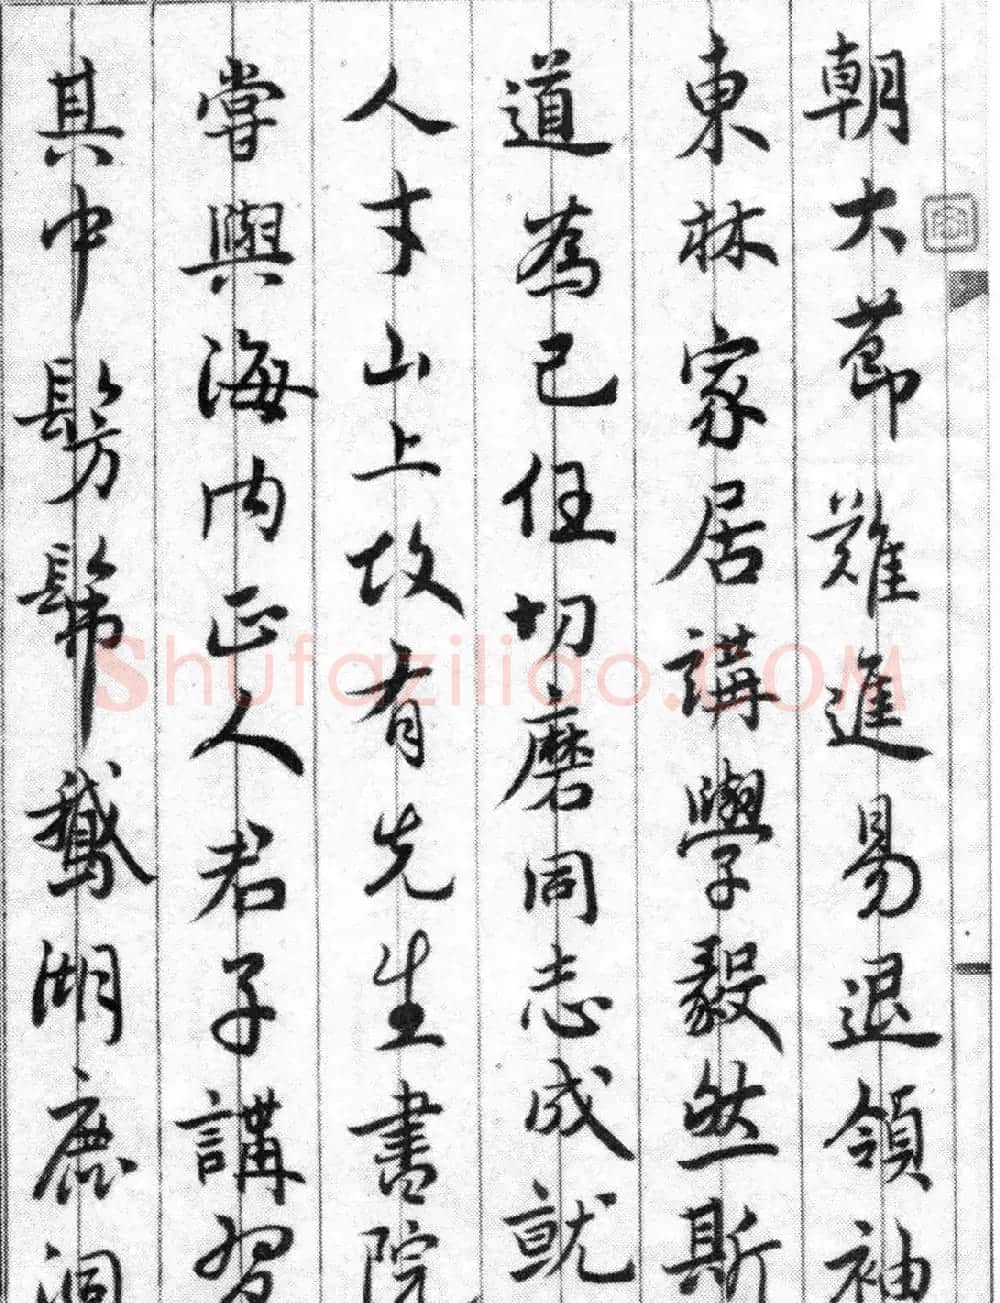 朝大節難進易退領袖
東林家居講學毅然斯
道為己任切磨同志成就
人才山上故有先生書院
嘗與海內正人君子講習
其中髣髴鵝湖鹿洞
Shufaziliao.COM